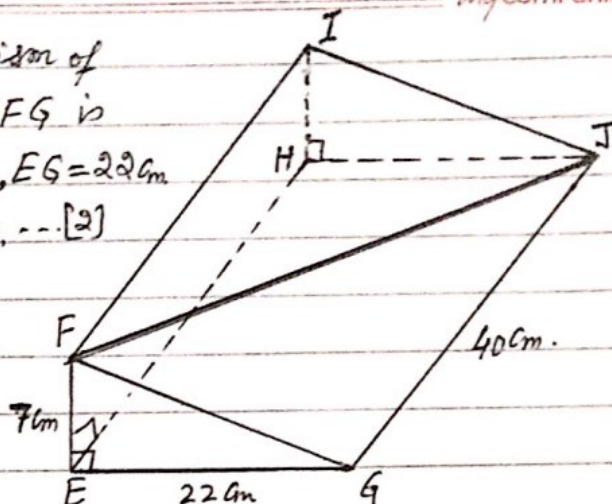 ism of
FG is
, EG = 22cm
, ...[2]
I
H
J
F
40cm.
7cm
E
22cm
G